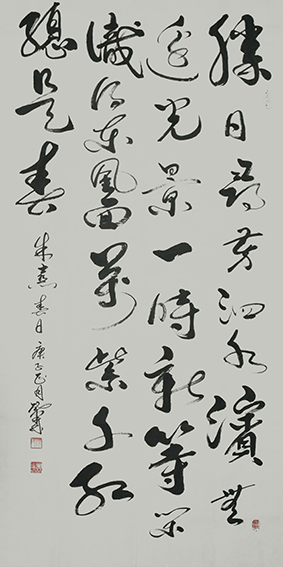 勝日尋芳泗水濱無
邊光景一時新等閒
識得東風面萬紫千紅
總是春
朱熹春日庚子正月